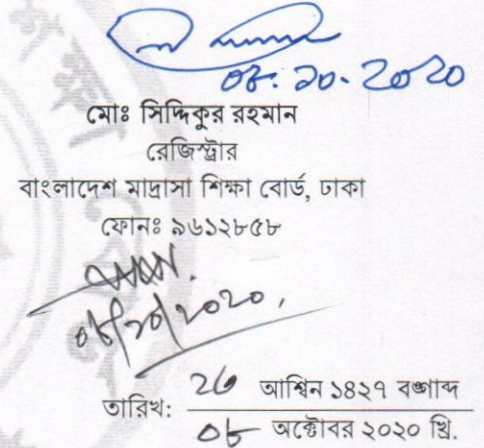 ০৮.১০.২০২০
মোঃ সিদ্দিকুর রহমান
রেজিস্ট্রার
বাংলাদেশ মাদ্রাসা শিক্ষা বোর্ড, ঢাকা
ফোনঃ ৯৬১২৮৫৮
০৮/১০/২০২০
তারিখ: ২৩ আশ্বিন ১৪২৭ বঙ্গাব্দ
০৮ অক্টোবর ২০২০ খ্রি.